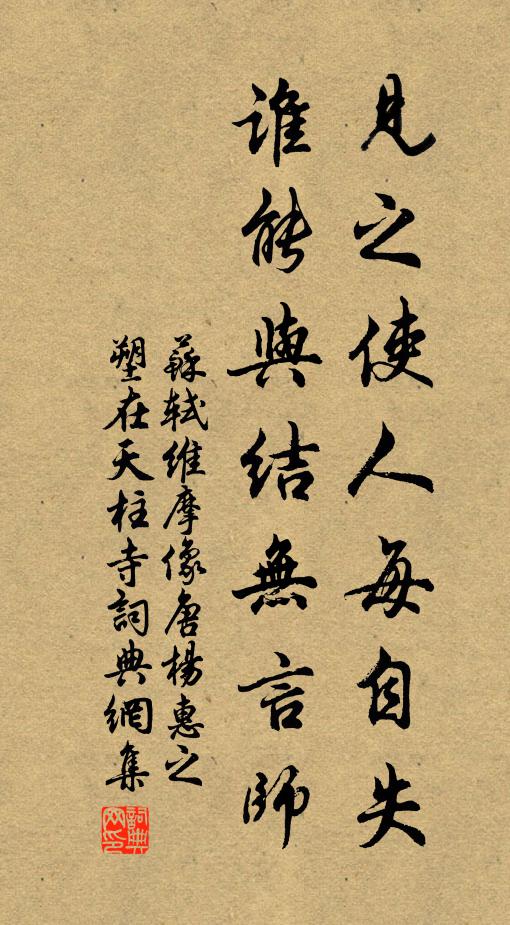 見之使人每自失
誰能與結無言師
蘇軾維摩像唐楊惠之
塑在天柱寺詞典網集
詞典網印